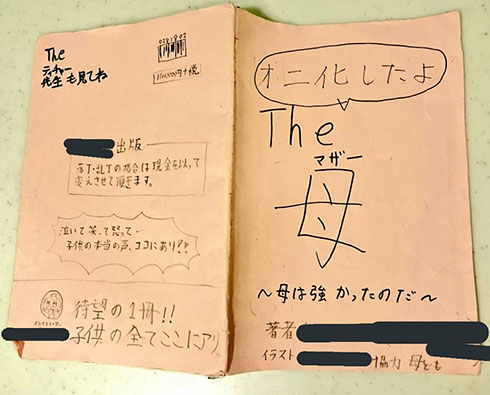 オニ化したよ
The
マザー
母
〜母は強かったのだ〜
著者
イラスト
協力 母ども
The
ティーチャー
先生も見てね
出版
落丁・乱丁の場合は現金を以って
変えさせて頂きます。
泣いて笑って怒って…
子供の本当の声、ココにあり!!
待望の1冊!!
子供の全てここにアリ。